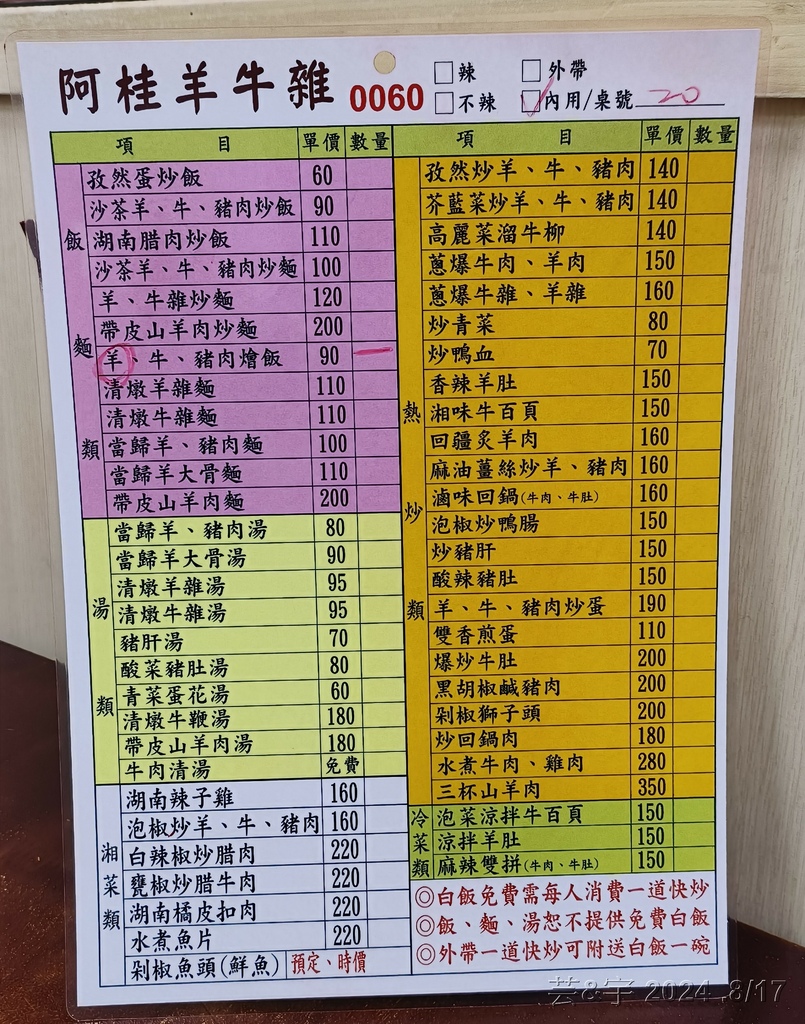 阿桂羊牛雜 0060
□辣 □外帶
□不辣 □內用/桌號 20
項目 單價 數量
飯麵類
孜然蛋炒飯 60
沙茶羊、牛、豬肉炒飯 90
湖南腊肉炒飯 110
沙茶羊、牛、豬肉炒麵 100
羊、牛雜炒麵 120
帶皮山羊肉炒麵 200
羊、牛、豬肉燴飯 90 一
清燉羊雜麵 110
清燉牛雜麵 110
當歸羊、豬肉麵 100
當歸羊大骨麵 110
帶皮山羊肉麵 200
湯類
當歸羊、豬肉湯 80
當歸羊大骨湯 90
清燉羊雜湯 95
清燉牛雜湯 95
豬肝湯 70
酸菜豬肚湯 80
青菜蛋花湯 60
清燉牛鞭湯 180
帶皮山羊肉湯 180
牛肉清湯 免費
湘菜類
湖南辣子雞 160
泡椒炒羊、牛、豬肉 160
白辣椒炒腊肉 220
甕椒炒腊牛肉 220
湖南橘皮扣肉 220
水煮魚片 220
剁椒魚頭(鮮魚) 預定、時價
項目 單價 數量
熱炒類
孜然炒羊、牛、豬肉 140
芥藍菜炒羊、牛、豬肉 140
高麗菜溜牛柳 140
蔥爆牛肉、羊肉 150
蔥爆牛雜、羊雜 160
炒青菜 80
炒鴨血 70
香辣羊肚 150
湘味牛百頁 150
回疆炙羊肉 160
麻油薑絲炒羊、豬肉 160
滷味回鍋(牛肉、牛肚) 160
泡椒炒鴨腸 150
炒豬肝 150
酸辣豬肚 150
羊、牛、豬肉炒蛋 190
雙香煎蛋 110
爆炒牛肚 200
黑胡椒鹹豬肉 200
剁椒獅子頭 200
炒回鍋肉 180
水煮牛肉、雞肉 280
三杯山羊肉 350
冷菜類
泡菜涼拌牛百頁 150
涼拌羊肚 150
麻辣雙拼(牛肉、牛肚) 150
◎白飯免費需每人消費一道快炒
◎飯、麵、湯恕不提供免費白飯
◎外帶一道快炒可附送白飯一碗
芸&宇 2024 8/17